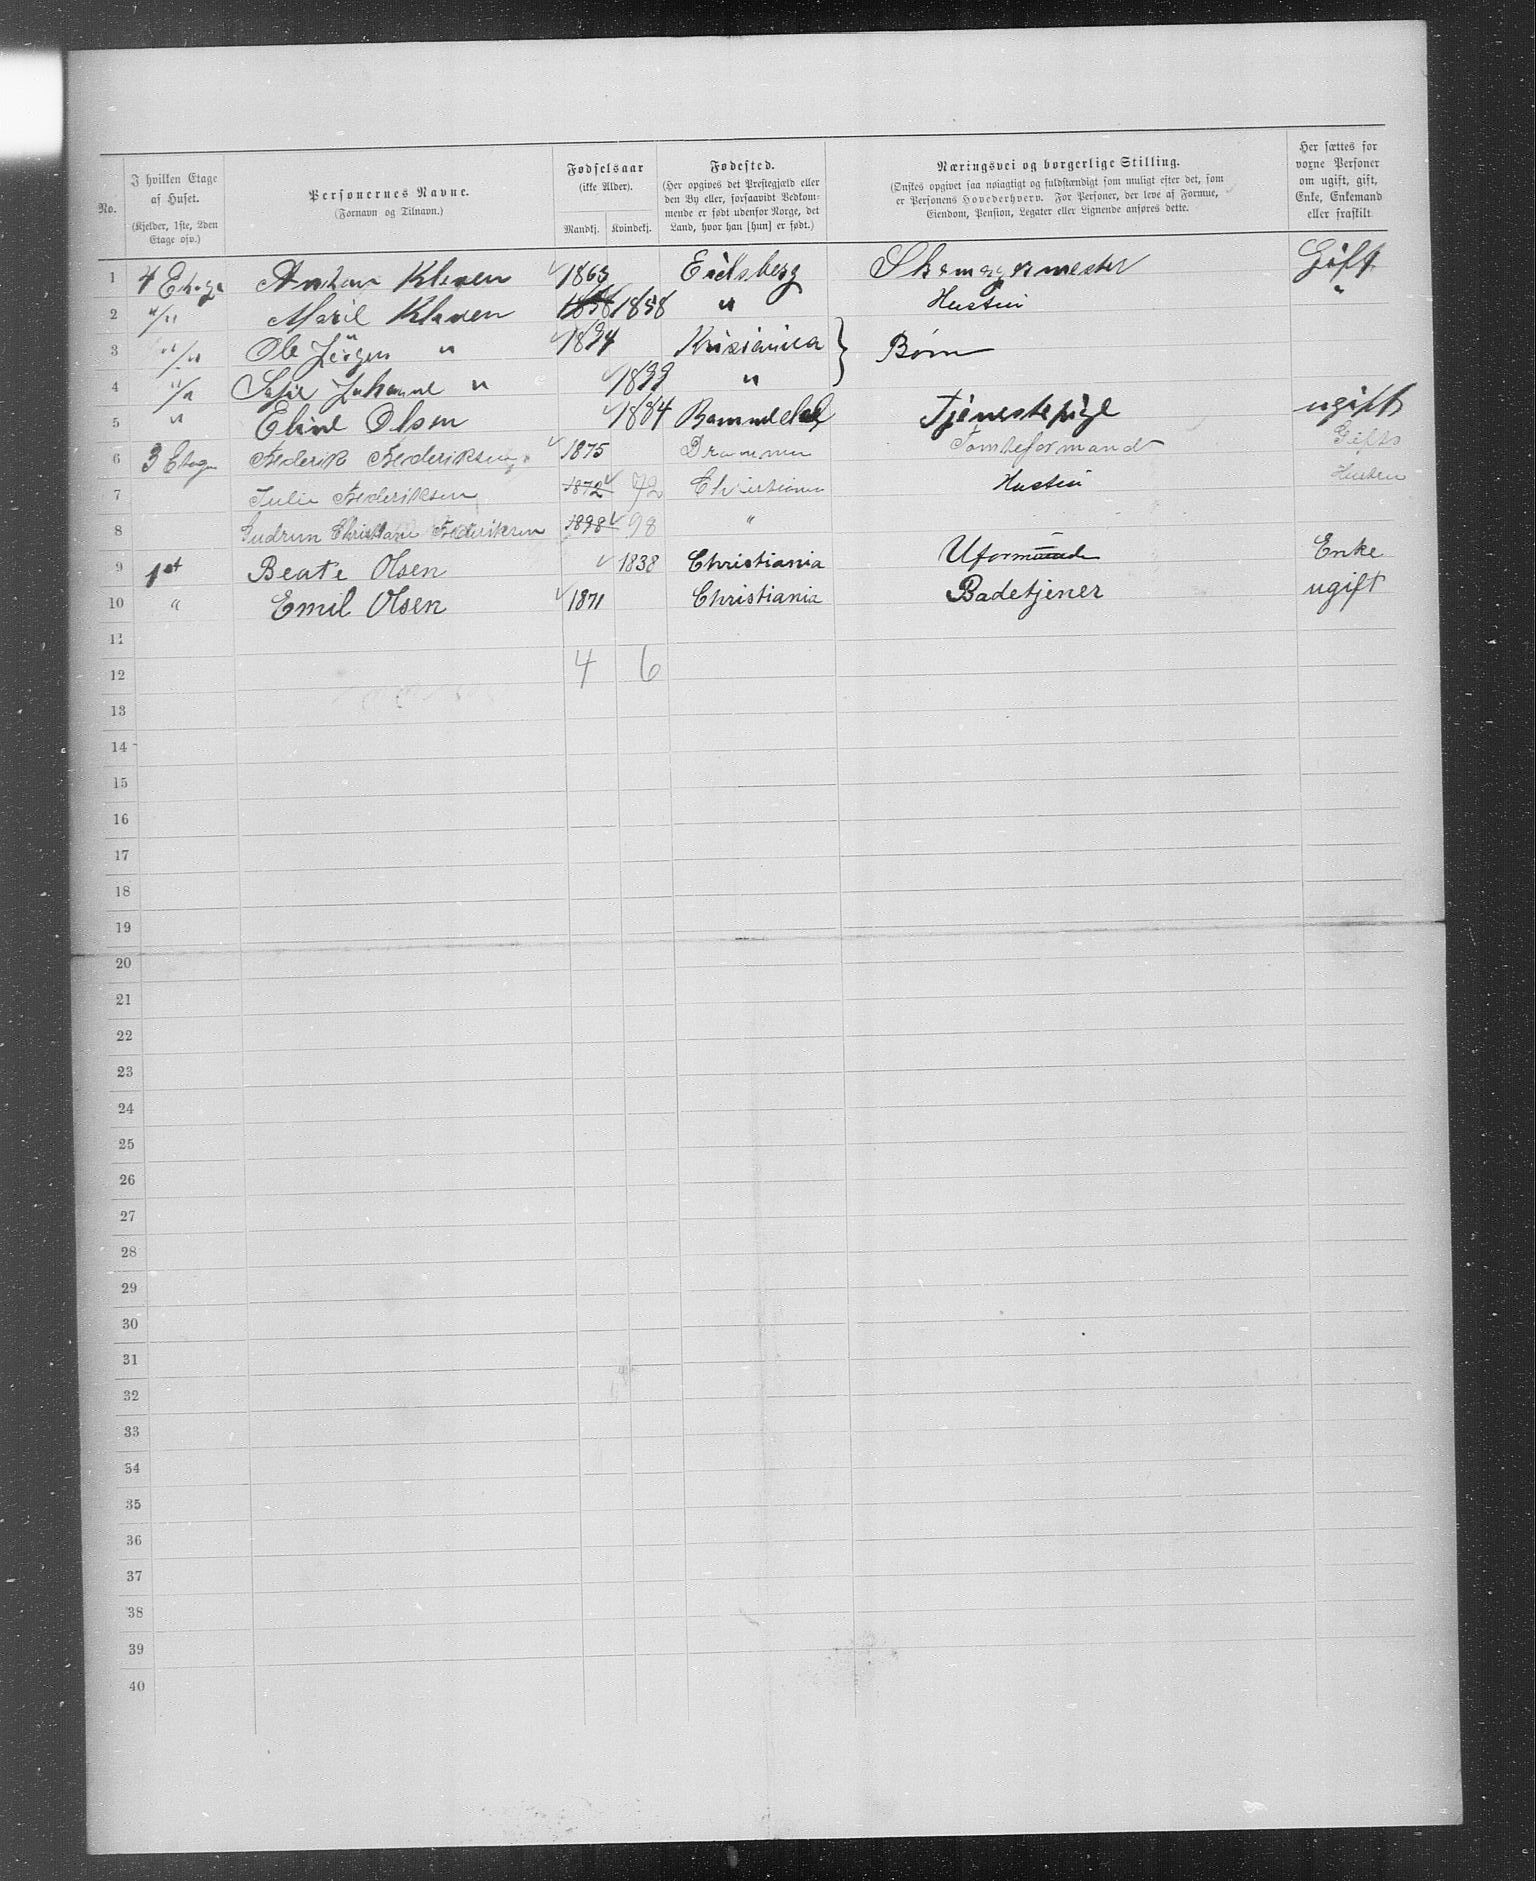 No.
I hvilken Etage af Huset.
(Kjelder, 1ste, 2den Etage osv.)
Personernes Navne.
(Fornavn og Tilnavn.)
Fødselsaar
(ikke Alder).
Mandkj. Kvindekj.
Fødested.
(Her opgives det Prestegjæld eller
den By eller, forsaavidt Vedkom-
mende er født udenfor Norge, det
Land, hvor han [hun] er født.)
Næringsvei og borgerlige Stilling.
(Ønskes opgivet saa nøiagtigt og fuldstændigt som muligt efter det, som
er Personens Hovederhverv. For Personer, der leve af Formue,
Eiendom, Pension, Legater eller Lignende anføres dette.
Her sættes for
voxne Personer
om ugift, gift,
Enke, Enkemand
eller fraskilt
1 4 Etage Klaven 1863 Eidsberg Skomagermester Gift
2 "/" Klaven 1858 1858 " Hustru "
3 "/" Ole Jörgen " 1894 Kristiania } Børn
4 "/" Johanne " 1899 "
5 " Olsen 1884 Tjenestepige ugift
6 3 Etage Frederik Frederiksen 1875 Drammen Tomteformand Gifts
7 Julie Frederiksen 1872 72 Christiania Hustru
8 Gudrun Frederiksen 1898 98 "
9 1st Beate Olsen 1838 Christiania Enke
10 " Emil Olsen 1871 Christiania Badetjener ugift
11
12 4 6
13
14
15
16
17
18
19
20
21
22
23
24
25
26
27
28
29
30
31
32
33
34
35
36
37
38
39
40